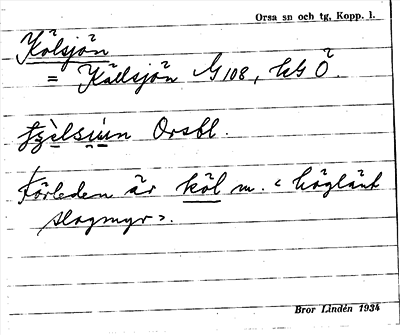 Orsa sn och tg, Kopp. l.
Kölsjön
= Källsjön G 108, bl Ö.
Orsbl.
Förleden är köl m. < höglänt
slogmyr >.
Bror Lindén 1934